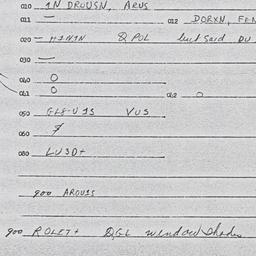 010 IN DRUWSN, ARUS
011 — 012 DORXN, FEN
020 — H1N1N & POL but said DU
030 —
040 0
041 0 042 0
050 GL8-U1S VUS
060 7
080 LUSD+
900 AROU1S
900 ROLET+ QGL window shades